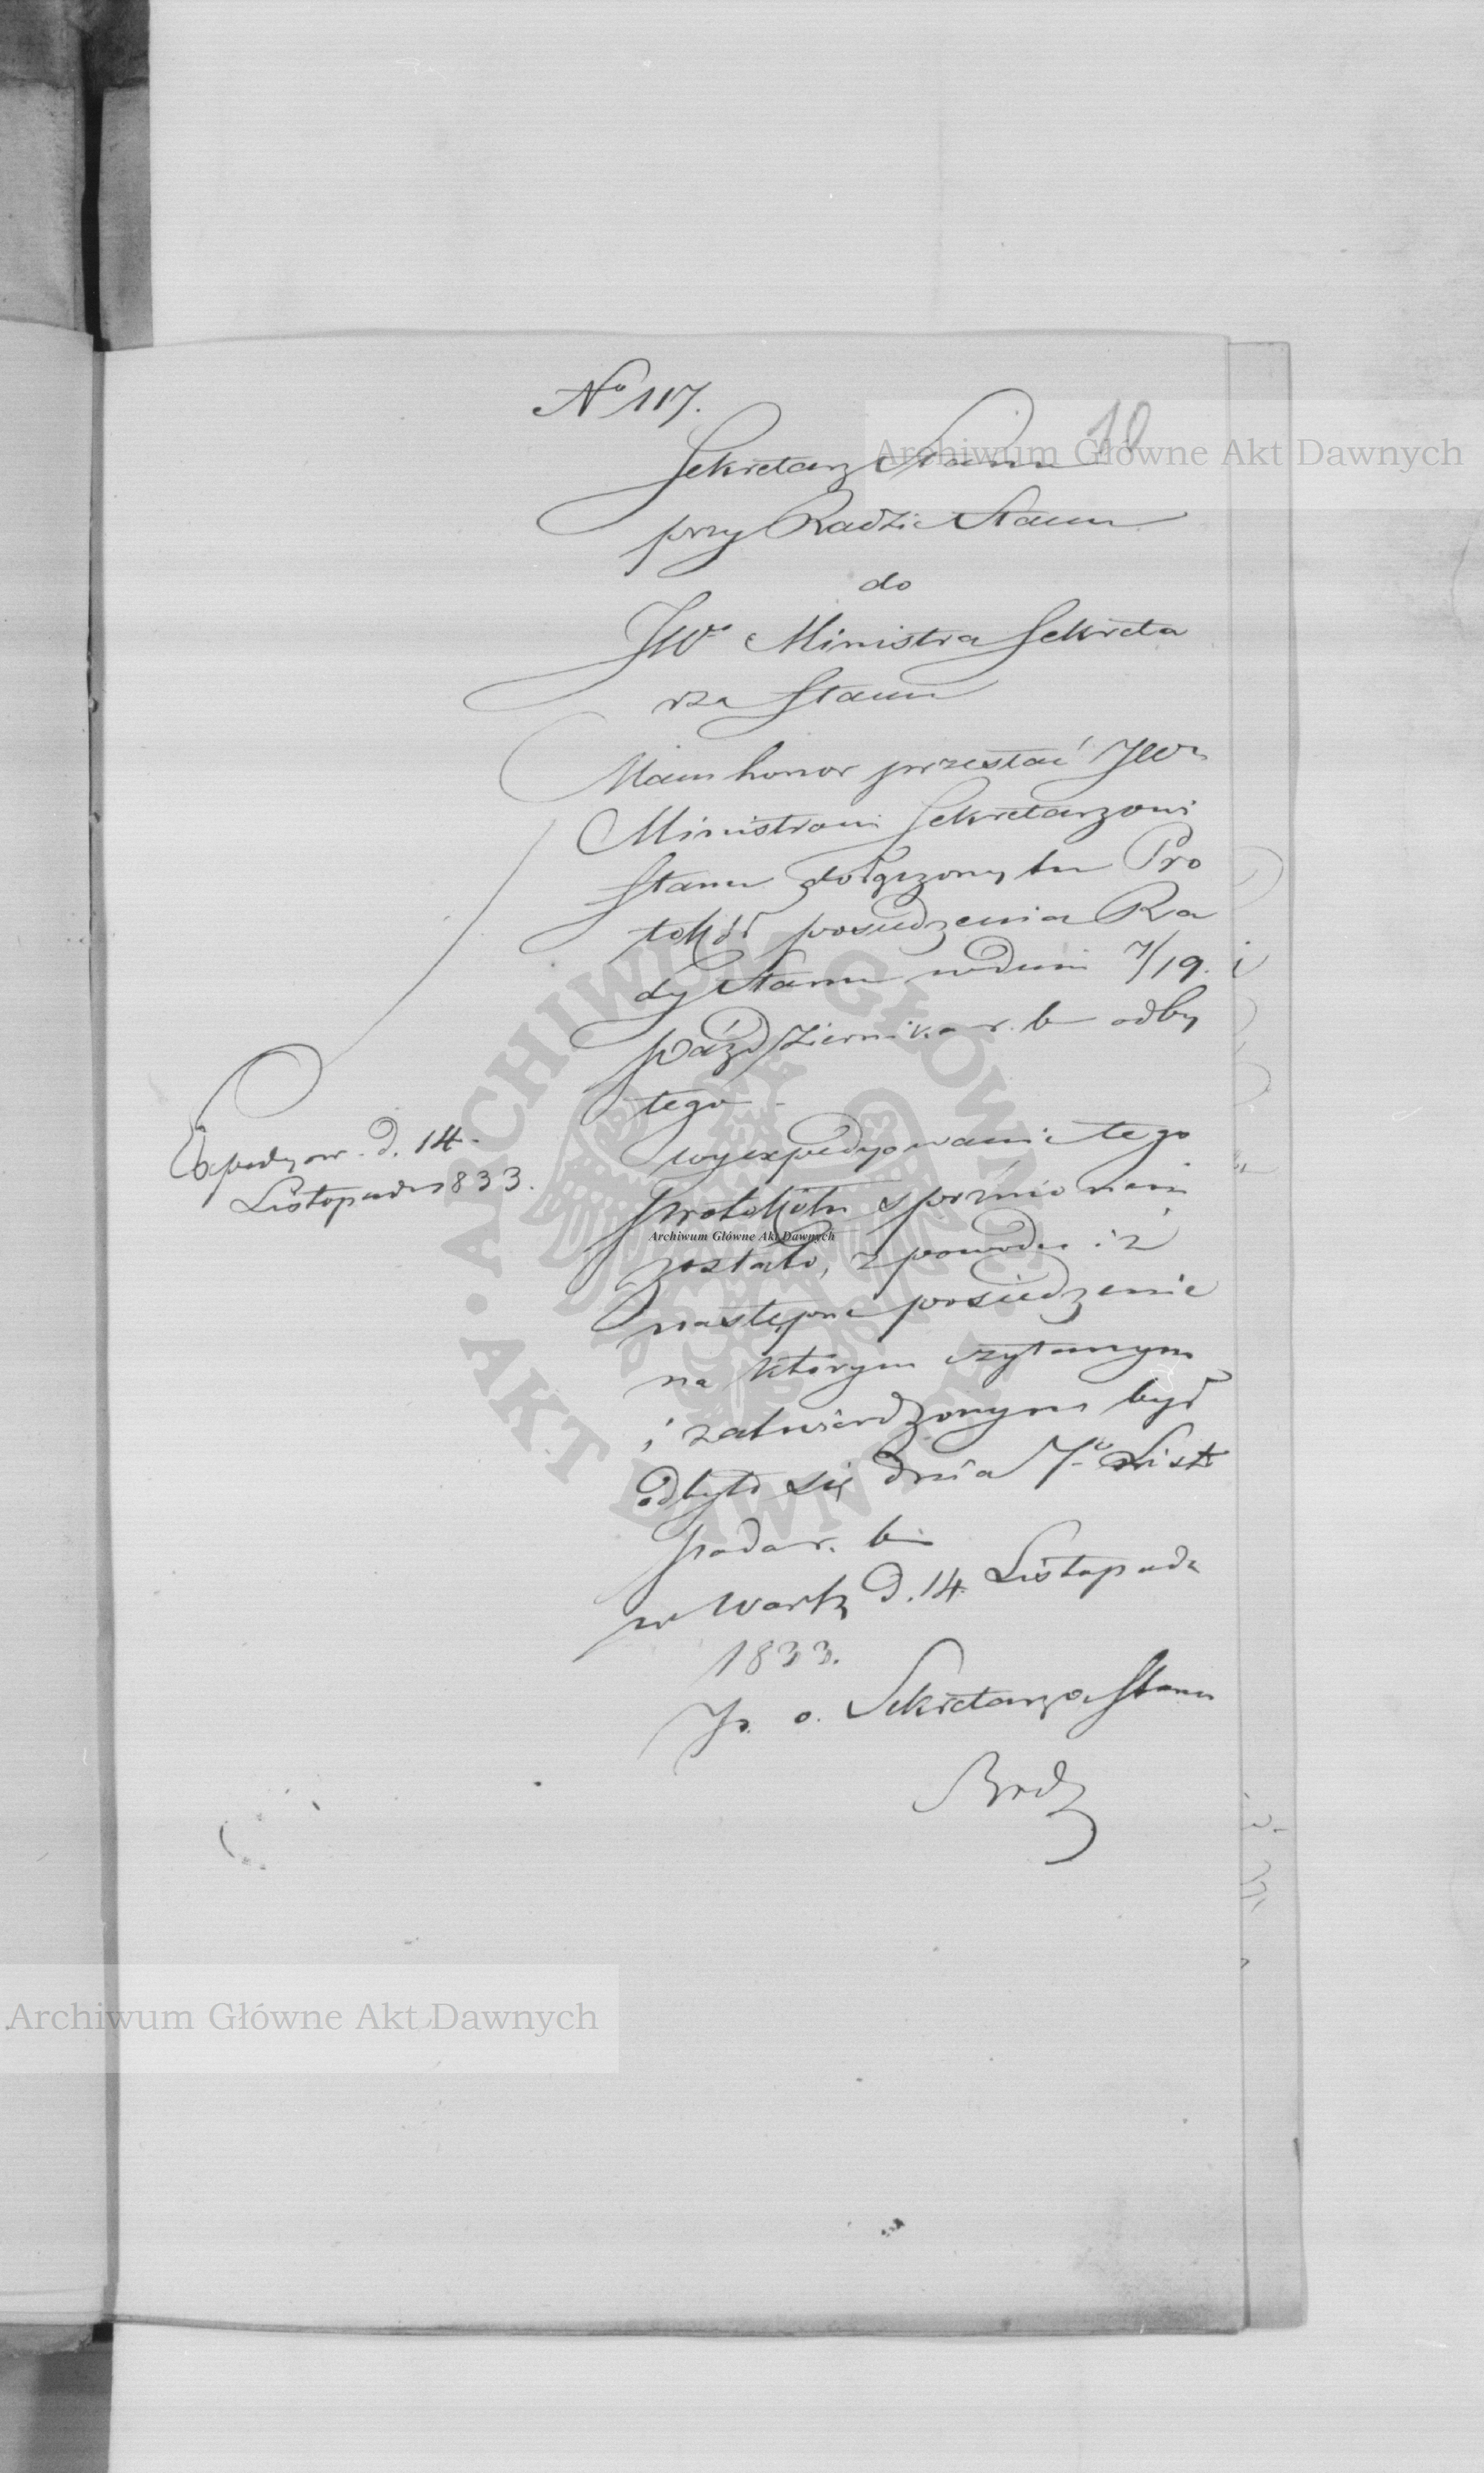 No 117.
10
Sekretarz Stanu
przy Radzie Stanu
do
JW. Ministra Sekreta
rza Stanu
Mam honor przesłać JW.
Ministrowi Sekretarzowi
Stanu dołączony tu Pro
tokół posiedzenia Ra
dy Stanu w dniu 7/19.
Października r. b. odby
tego.
wyexpedyowanie tego
protokółu spóźnionem
zostało, z powodu iż
następne posiedzenie
na którym czytanym
i zatwierdzonym był
odbyło się dnia 7o Listo
pada r. b.
w Warsz. d. 14. Listopada
1833.
P. o. Sekretarza Stanu
Expedyow. d. 14.
Listopada 1833.
Archiwum Główne Akt Dawnych
Archiwum Główne Akt Dawnych
Archiwum Główne Akt Dawnych
ARCHIWUM GŁÓWNE • AKT DAWNYCH